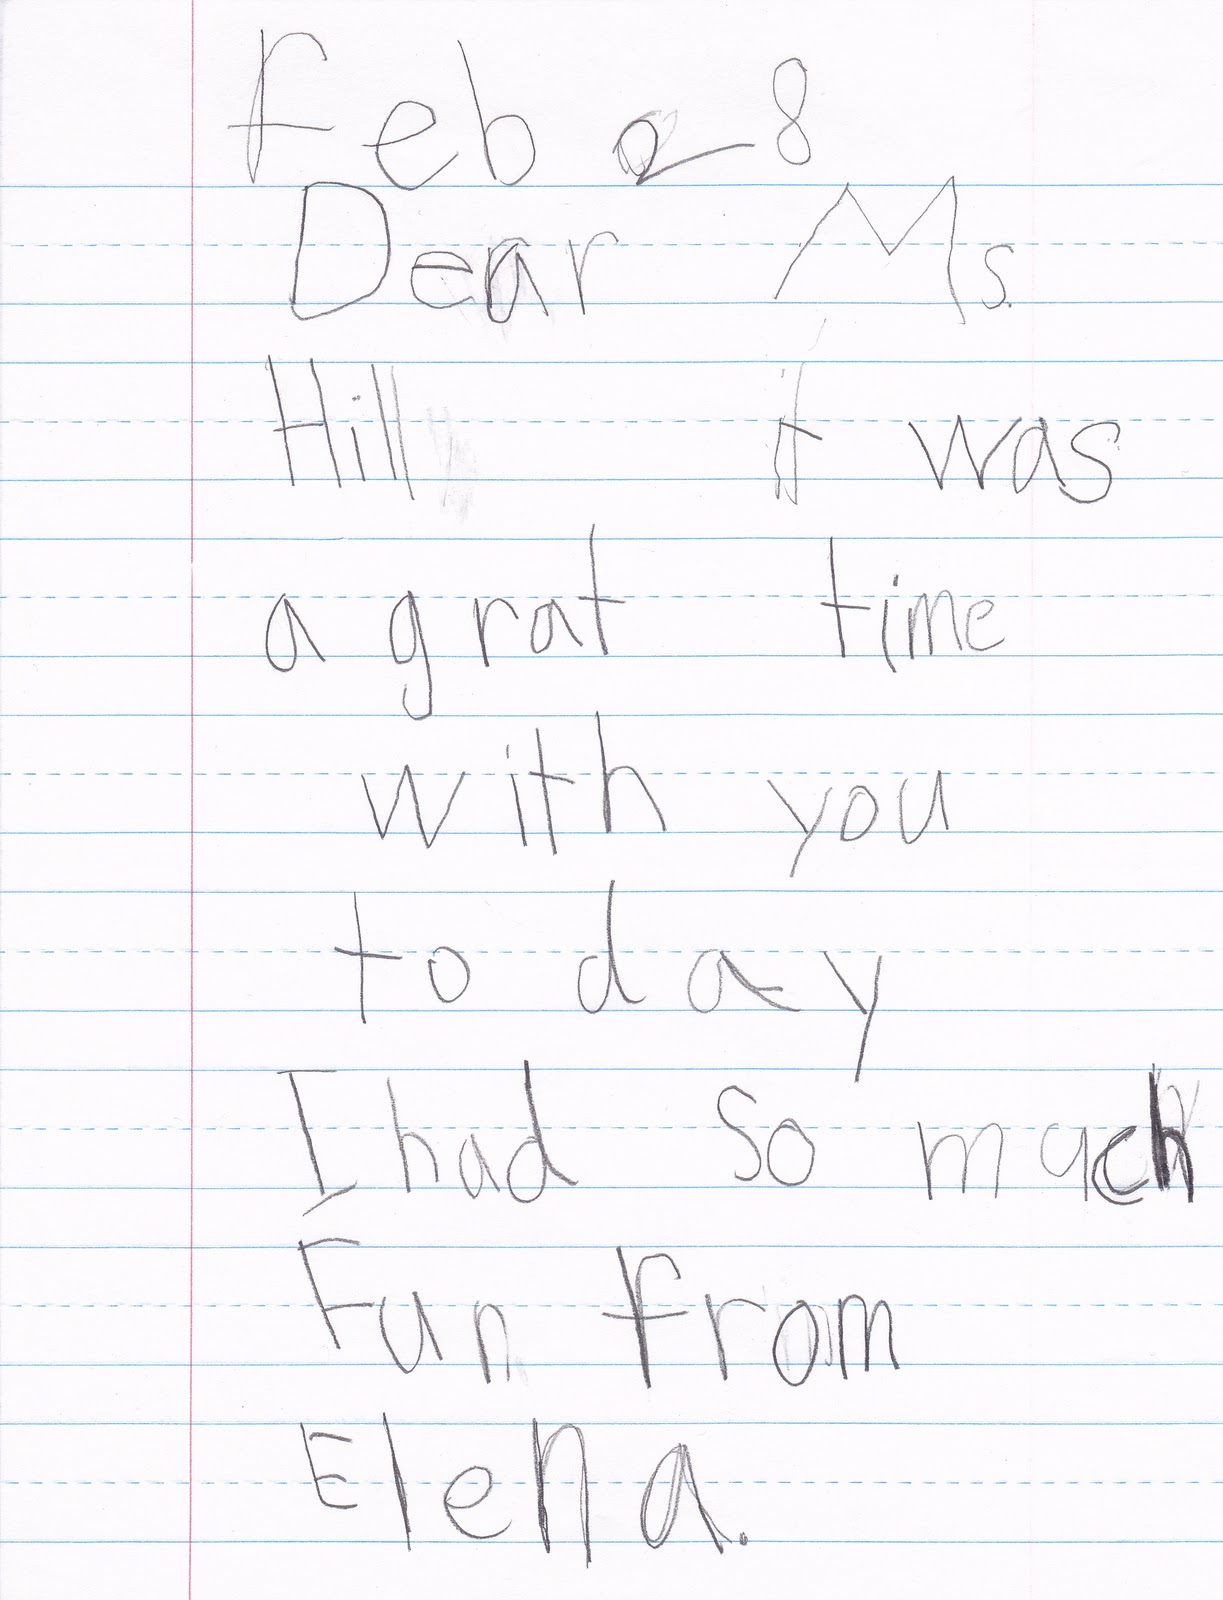 Feb 28
Dear Ms.
Hill it was
a grat time
with you
to day
I had so much
Fun from
Elena.